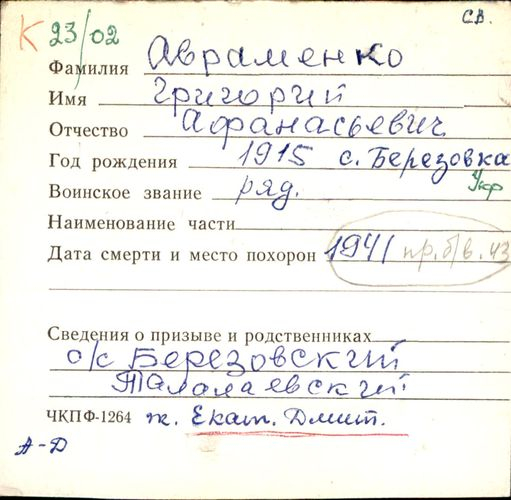 св.
К 23/02
Фамилия Авраменко
Имя Григорий
Отчество Афанасьевич
Год рождения 1915 с. Березовка
Воинское звание ряд.
Наименование части
Дата смерти и место похорон 1941 пр. б/в. 43
Сведения о призыве и родственниках
с/с Березовский
Талалаевский
ЧКПФ-1264 ж. Екат. Дмит.
А-Д